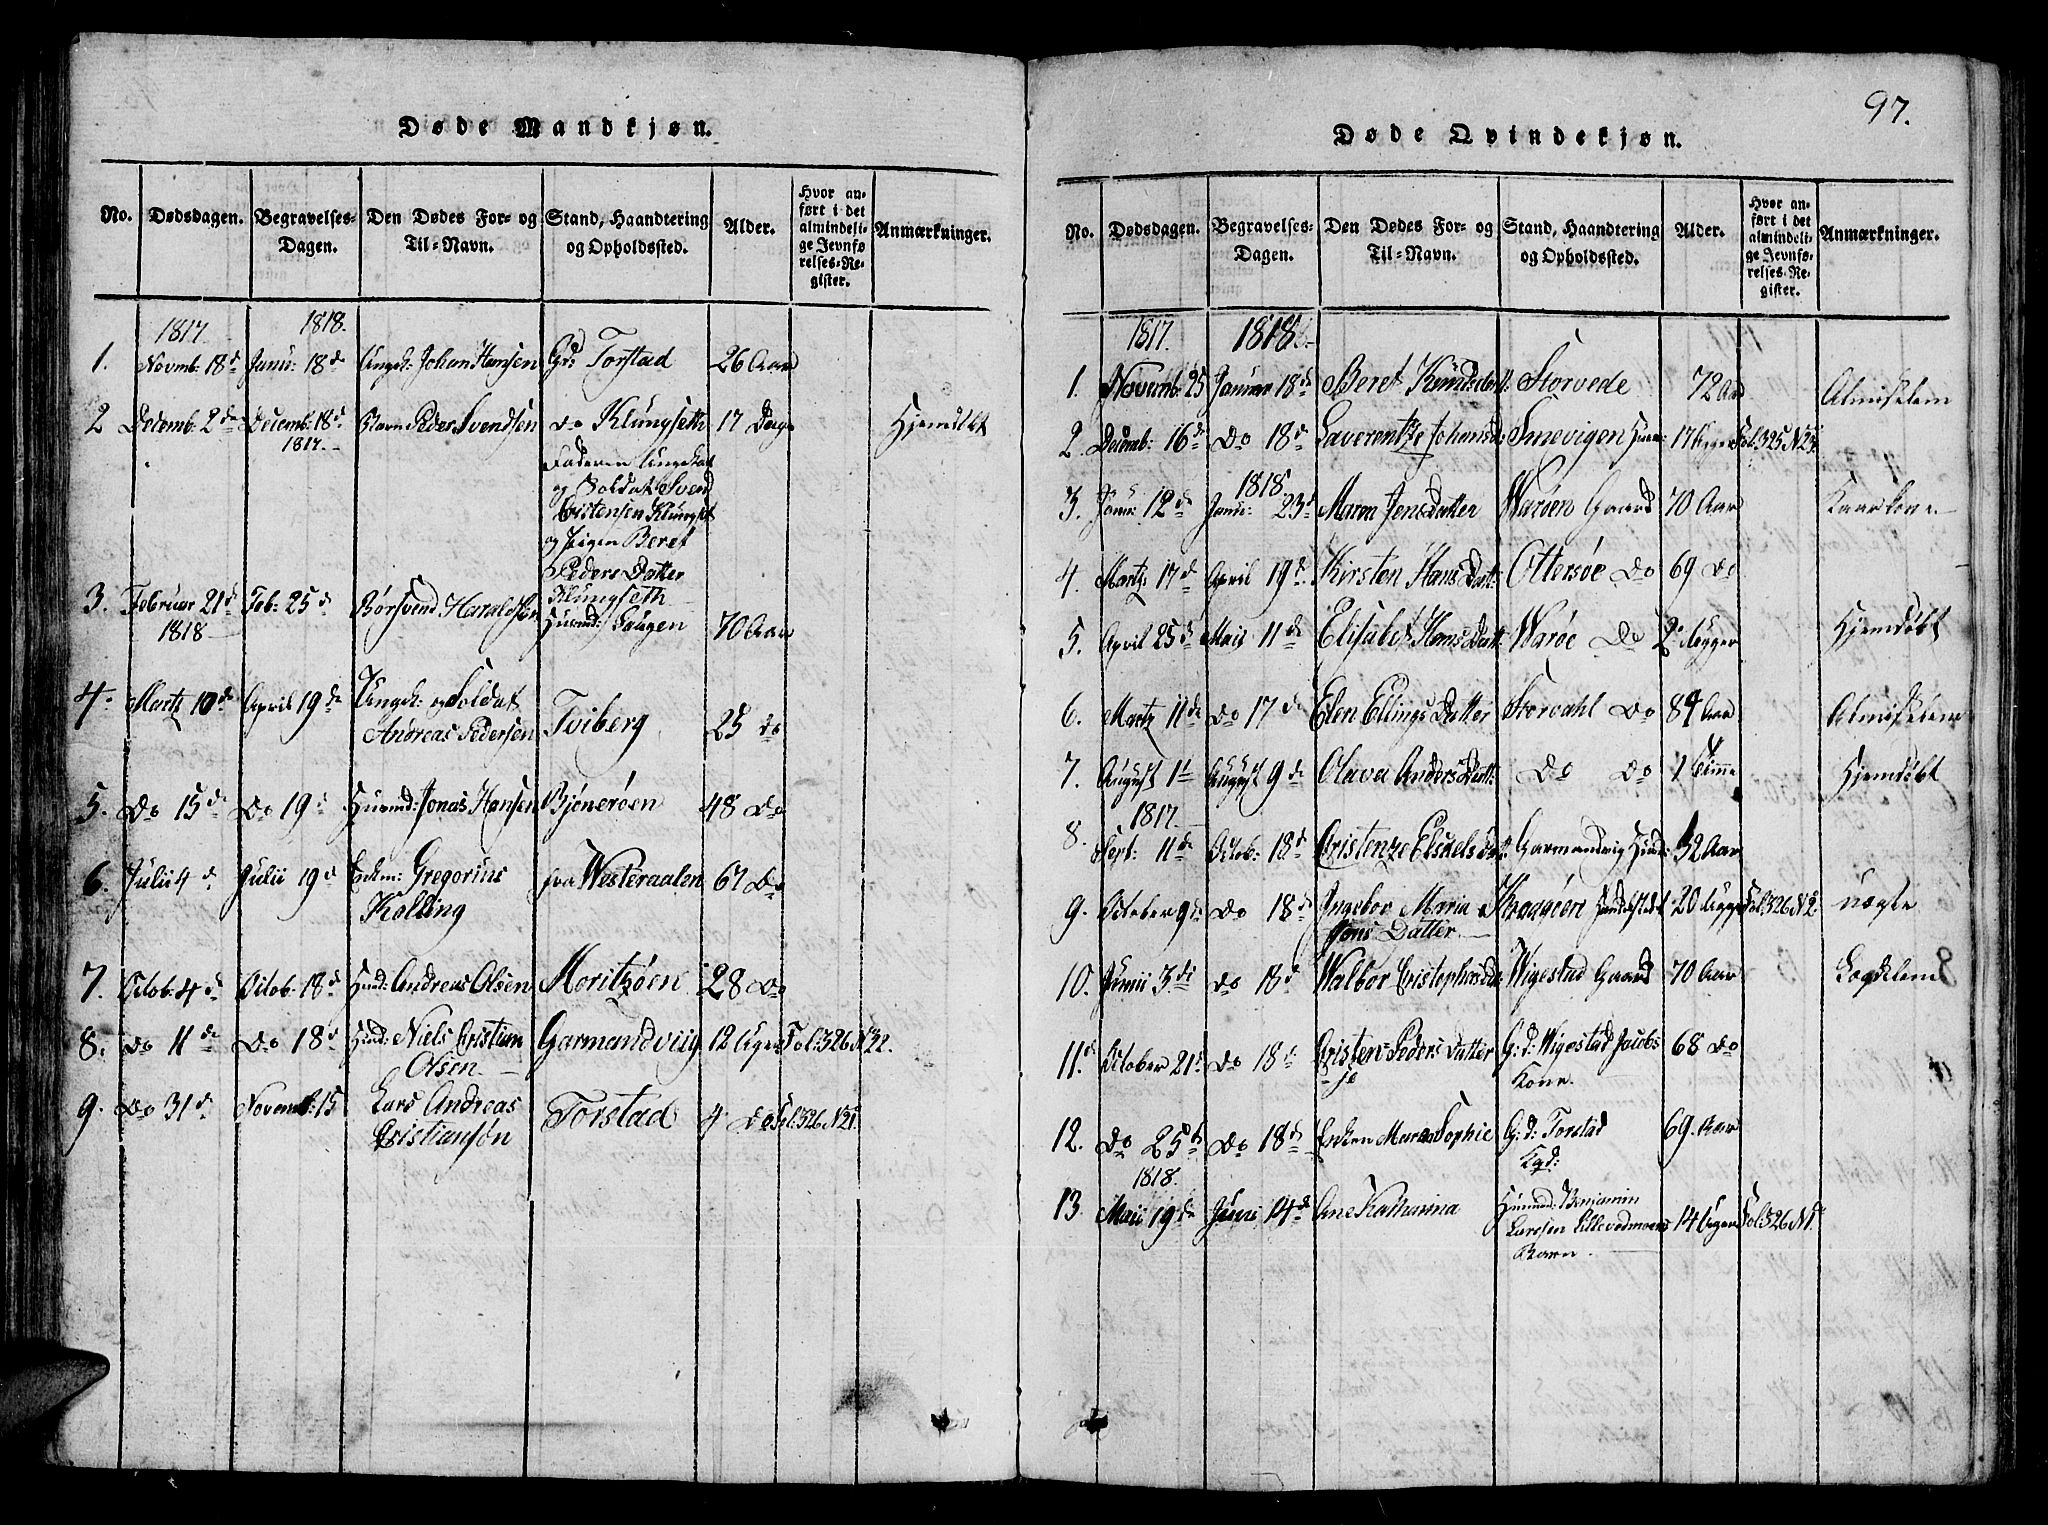 97.
Døde Mandkjøn.
No. Dødsdagen. Begravelses-Dagen. Den Dødes For- og Til-Navn. Stand, Haandtering og Opholdssted. Alder. Hvor anført i det almindelige Jevnførelses-Register. Anmærkninger.
1817. 1818.
1. Novmb: 18d Janu: 18de Ungk: Johan Hansen Gd: Torstad 26 Aar
2 Decemb. 2de Decemb: 18d Barn Peder Svendsen do Klungseth 17 Dage Hjemdøbt
1817.
Faderen Ungkal
og Soldat Svend
Cristensen Klungset
og Pigen Beret
Peders Datter
Klungseth
3. Februar 21d Feb: 25d Børsvend Haraldsen Huusmd: Laugen 70 Aar
1818
4. Martz 10de April 19de Ungk: og Soldat
Andreas Pedersen Tviberg 25 do
5. Do 15de Do 19d Huusmd: Jonas Hansen Bjønerøen 48 Do
6. Julii 4d Julii 19d Enkm: Gregorius fra Westeraalen 67 Do
Kolling
7. Octob: 4d Octob: 18d Huusd: Andreas Olsen Moritzøen 28 Do
8. Do 11de Do 18d Huusd: Niels Cristian Garmandviig 12 Uger Fol: 326 N 32.
Olsen
9. Do 31d Novemb: 15 Lars Andreas Torstad 4 Do Fol: 326 N 21.
Cristiansøn
Døde Qvindekjøn.
No. Dødsdagen. Begravelses-Dagen. Den Dødes For- og Til-Navn. Stand, Haandtering og Opholdssted. Alder. Hvor anført i det almindelige Jevnførelses-Register. Anmærkninger.
1817. 1818
1. Novemb: 25 Januar 18de Beret Knudsdatt: Storvede 72 Aar Almislem
2. Decemb: 16de Do 18d Laverentze Johansd: Smevigen 17 Uger Fol: 325 N 23.
1818
3. Janu: 12de Janu: 23d Maren Jensdatter Warøen Gaard 70 Aar Kaarkone
4. Martz 17d April 19d Kirsten Hans Datt: Ottersøe Do 69 Do
5. April 25d Maij 11de Elisabet Hans Datt: Warøe Do 2 Uger Hjemdøbt
6. Martz 11de Do 17de Elen Ellings Datter Storvahl Do 84 Aar Almislem
7. August 1t August 9de Olava Anders Datt: Do Do 1 Time Hjemdøbt
1817.
8. Sept: 11de Octob: 18d Cristenze Elskelsdat: Garmandvig Huusd: 52 Aar
9. October 9de Do 18de Ingebor Maria Kraagøen 20 Uger Fol: 326 N 2. uægte
Jons Datter
10. Junii 3di Do 18d Walbor Cristophersda: Wigestad Gaard 70 Aar Lægdslem
11d October 21d Do 18de Cristen= Peders Datter G: d: Wigestad Jacobs 68 Do
se Kone.
12. Do 25d Do 18de Enken Maren Sophie G: d: Torstad 69 Aar
Kgd:
1818.
13. Maii 19de Juni 14d Ane Katharina Huusmd: Benjamin
Larssen Lillevedmoens 14 Uger Fol: 326 N 1.
Barn.